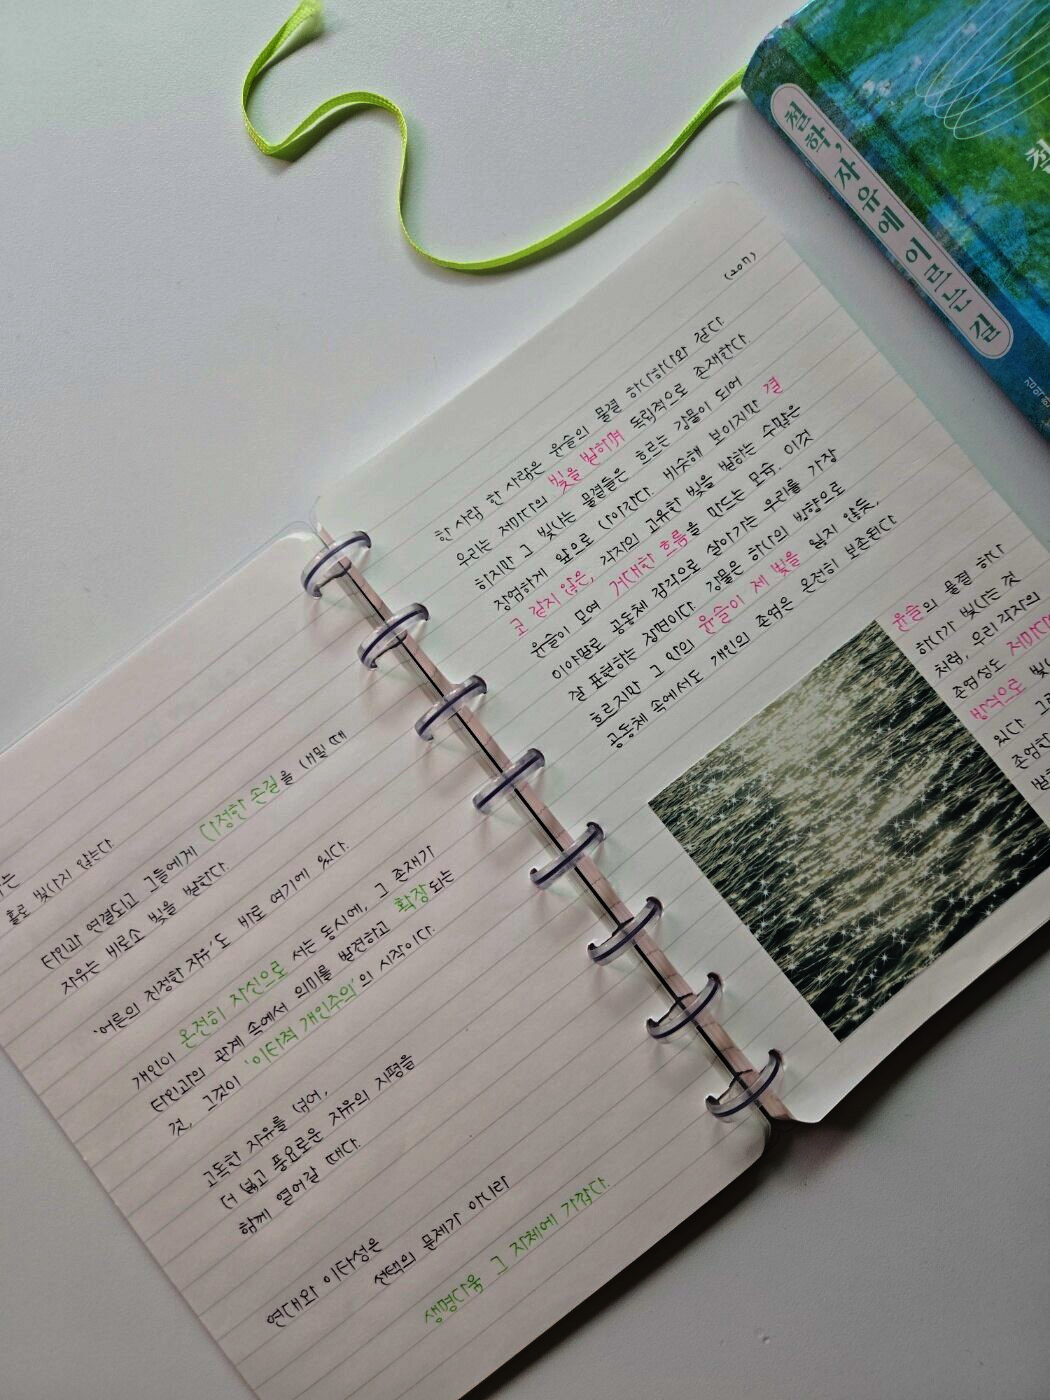 는
홀로 빛나지 않는다
타인과 연결되고 그들에게 다정한 손길을 내밀 때
자유는 비로소 빛을 발한다.
'어른의 진정한 자유'도 바로 여기에 있다.
개인이 온전히 자신으로 서는 동시에, 그 존재가
타인과의 관계 속에서 의미를 발견하고 확장되는
것, 그것이 '이타적 개인주의'의 시작이다.
고독한 자유를 넘어,
더 넓고 풍요로운 자유의 지평을
함께 열어갈 때다.
연대와 이타성은
선택의 문제가 아니라
생명다움 그 자체에 가깝다.
(207)
한 사람 한 사람은 윤슬의 물결 하나하나와 같다.
우리는 저마다의 빛을 발하며 독립적으로 존재한다
하지만 그 빛나는 물결들은 흐르는 강물이 되어
장엄하게 앞으로 나아간다. 비슷해 보이지만 결
코 같지 않은, 각자의 고유한 빛을 발하는 수많은
윤슬이 모여 거대한 흐름을 만드는 모습. 이것
이야말로 공동체 감각으로 살아가는 우리를 가장
잘 표현하는 장면이다. 강물은 하나의 방향으로
흐르지만 그 안의 윤슬이 제 빛을 잃지 않듯,
공동체 속에서도 개인의 존엄은 온전히 보존된다
윤슬의 물결 하나
하나가 빛나는 것
처럼, 우리 각자의
존엄성도 저마다의
방식으로 빛
있다. 그
존엄한
철학, 자유에 이르는 길
철